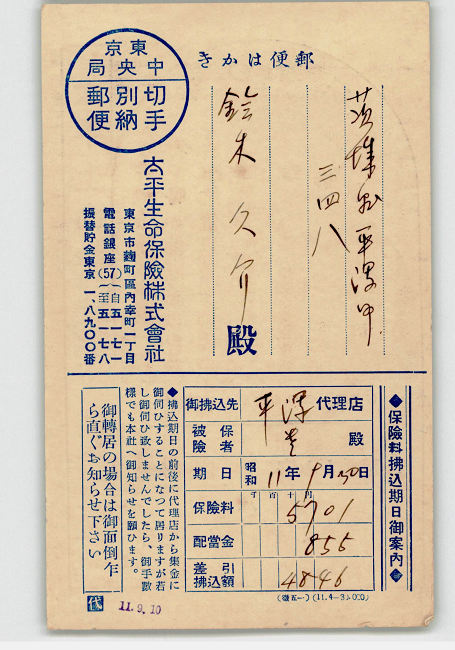 郵便はかき
東京
中央局
切手
別納
郵便
三四八
鈴木久介殿
太平生命保險株式會社
東京市麴町區內幸町一丁目
電話銀座(57)(自五一七一至五一七八)
振替貯金東京一、八九〇〇番
◆保險料拂込期日御案內◆
御拂込先 平澤 代理店
被保險者 殿
期日 昭和11年9月30日
千百十円
保險料 5701
配當金 855
差引拂込額 4846
(徵五一)(11.4—3),000)
◆拂込期日の前後に代理店から集金に
御伺ひすることになつて居りますが若
し御伺ひ致しませんでしたら、御手數
樣でも本社へ御知らせを願ひます。
御轉居の場合は御面倒乍
ら直ぐお知らせ下さい
代
11.9.10